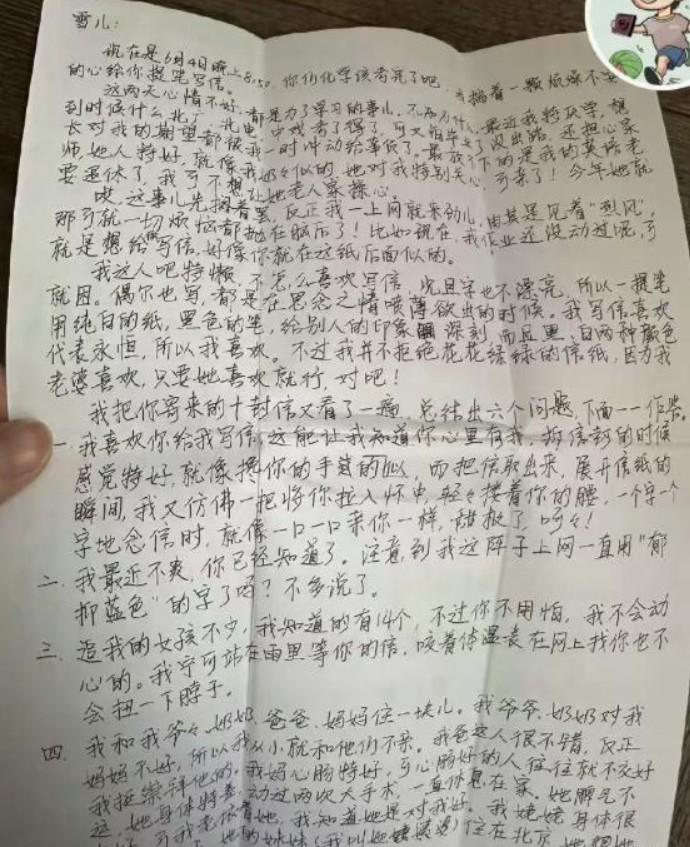 雪儿:
现在是6月4日晚上8:50,你们化学该考完了吧,我揣着一颗烦燥不安
的心给你提笔写信。
这两天心情不好,都是为了学习的事儿,不知为什么,最近我特厌学,想
到时候什么北广、北电、中戏考了得了,可又怕毕了没出路,还担心家
长对我的期望都被我一时冲动给辜负了。最放不下的是我的英语老
师,她人特好,就像我奶々似的,她对我特别关心,可亲了!今年她就
要退休了,我可不想让她老人家操心。
哎,这事儿先搁着罢,反正我一上网就来劲儿,由其是见着“烈风”,
那可就一切烦恼都抛在脑后了!比如现在,我作业还没动过呢,可
就是想给你写信,好像你就在这纸后面似的。
我这人吧特懒,不怎么喜欢写信,况且字也不漂亮,所以一提笔
就困。偶尔也写,都是在思念之情喷薄欲出的时候。我写信喜欢
用纯白的纸,黑色的笔,给别人的印象深刻,而且黑、白两种颜色
代表永恒,所以我喜欢。不过我并不拒绝花花绿绿的信纸,因为我
老婆喜欢,只要她喜欢就行,对吧!
我把你寄来的十封信又看了一遍,总结出六个问题,下面一一作答。
一、我喜欢你给我写信,这能让我知道你心里有我,拆信封的时候
感觉特好,就像搀你的手似的,而把信取出来,展开信纸的
瞬间,我又仿佛一把将你拉入怀中,轻々搂着你的腰,一个字一个
字地念信时,就像一口一口亲你一样,甜极了,呵々!
二、我最近不爽,你已经知道了。注意到我这阵子上网一直用“郁
抑蓝色”的字了吗?不多说了。
三、追我的女孩不少,我知道的有14个,不过你不用怕,我不会动
心的。我宁可站在雨里等你的信,咬着体温表在网上找你也不
会扭一下脖子。
四、我和我爷々、奶奶、爸爸、妈妈住一块儿。我爷爷、奶奶对我
妈妈不好,所以我从小就和他们不亲。我爸这人很不错,反正
我挺崇拜他的。我妈心肠特好,可心肠好的人往往就不交好
运,她身体特差,动过两次大手术,一直休息在家。她脾气不
可我老依着她,我知道她是对我好。我姥姥身体很
她的妹妹(我叫她姨婆)住在北京